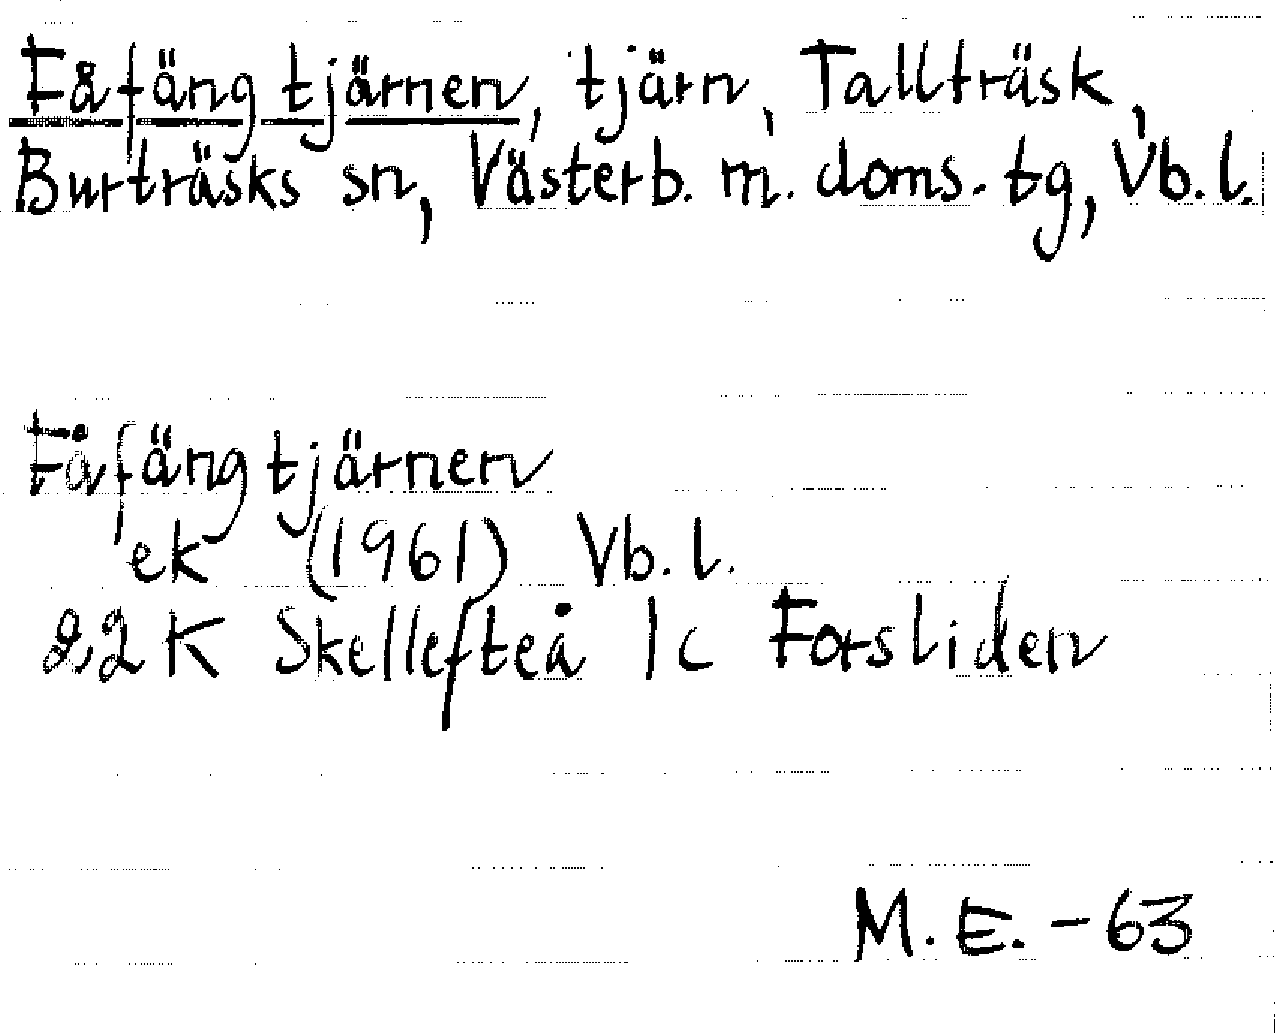 Fåfängtjärnen, tjärn, Tallträsk,
Burträsks sn, Västerb. m. doms. tg, Vb. l.
Fåfängtjärnen
ek (1961) Vb. l.
22 K Skellefteå 1c Forsliden
M. E. - 63